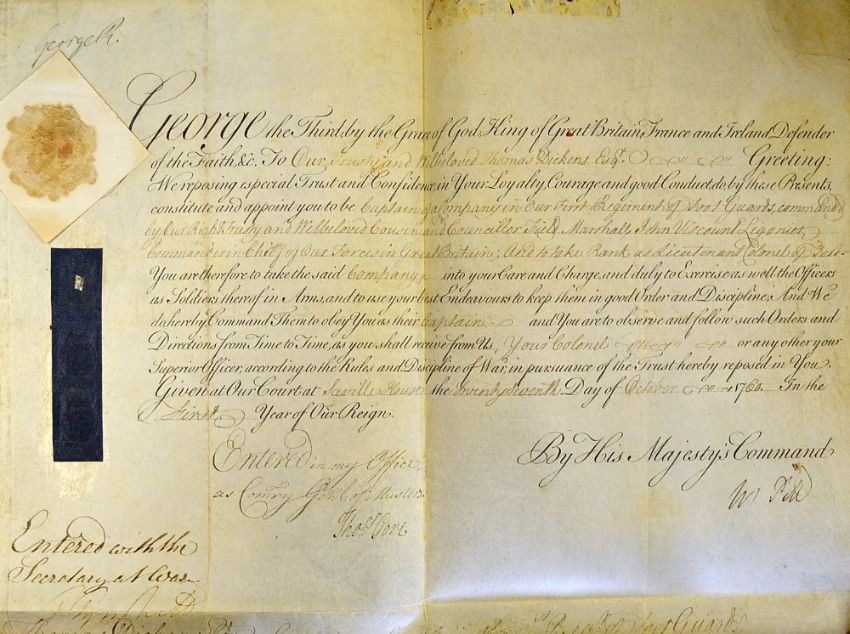 George R.
George the Third, by the Grace of God, King of Great Britain, France and Ireland, Defender
of the Faith, &c. To Our Trusty and Welbeloved Thomas Dickens Esqr. Greeting:
We reposing especial Trust and Confidence in Your Loyalty, Courage and good Conduct, do, by these Presents,
constitute and appoint you to be Captain of a Company in Our First Regiment of Foot Guards, commanded
by Our Right Trusty and Welbeloved Cousin and Councillor Field Marshall John Viscount Ligonier,
Commander in Chief of Our Forces in Great Britain; And to take Rank as Lieutenant Colonel of Foot.
You are therefore to take the said Company into your Care and Charge, and duly to Exercise as well the Officers
as Soldiers thereof in Arms, and to use your best Endeavours to keep them in good Order and Discipline; And We
do hereby Command Them to obey You as their Captain and You are to observe and follow such Orders and
Direction from Time to Time, as you shall receive from Us, Your Colonel or any other your
Superior Officer, according to the Rules and Discipline of War, in pursuance of the Trust hereby reposed in You.
Given at Our Court at Saville House the twenty seventh Day of October 1760. In the
First Year of Our Reign.
By His Majesty's Command
Entered in my Office,
as Comry Genl of Musters
W Pitt
Thos. Gore
Entered with the
Secretary at War
Foot Guards